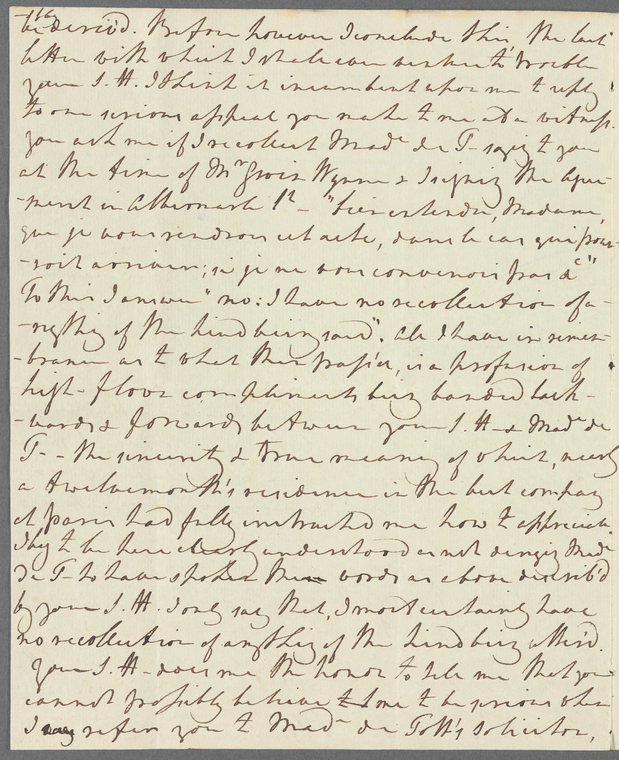 be deriv'd. Before however I conclude this, the last
letter with which I shall ever venture to trouble
your S. H. I think it incumbent upon me to reply
to one serious appeal you make to me as a witness.
you ask me if I recollect Mad.e de T— saying to you
at the time of Mr Wynne & I signing the Agree-
-ment in Albermarle St — "bien entendu, Madame,
que je vous rendrois cet acte, dans le cas qui pour-
-roit arriver; si je ne vous convenois pas &c"
To this I answer "no: I have no recollection of a-
-nything of the kind being said". All I have in remem-
-brance as to what then pass'd, is a profusion of
high-flown compliments being bandied back-
-wards & forwards between your S. H— & Made de
T— the sincerity & true meaning of which, nearly
a twelvemonth's residence in the best company
at Paris had fully instructed me how to appreciate.
I beg to be here clearly understood as not denying Made
de T— to have spoken the words as above describ'd
by your S. H. I only say that, I most certainly have
no recollection of anything of the kind being utter'd.
Your S. H— does me the honor to tell me that you
cannot possibly believe me to be serious when
I refer you to Made de Tott's Solicitor,